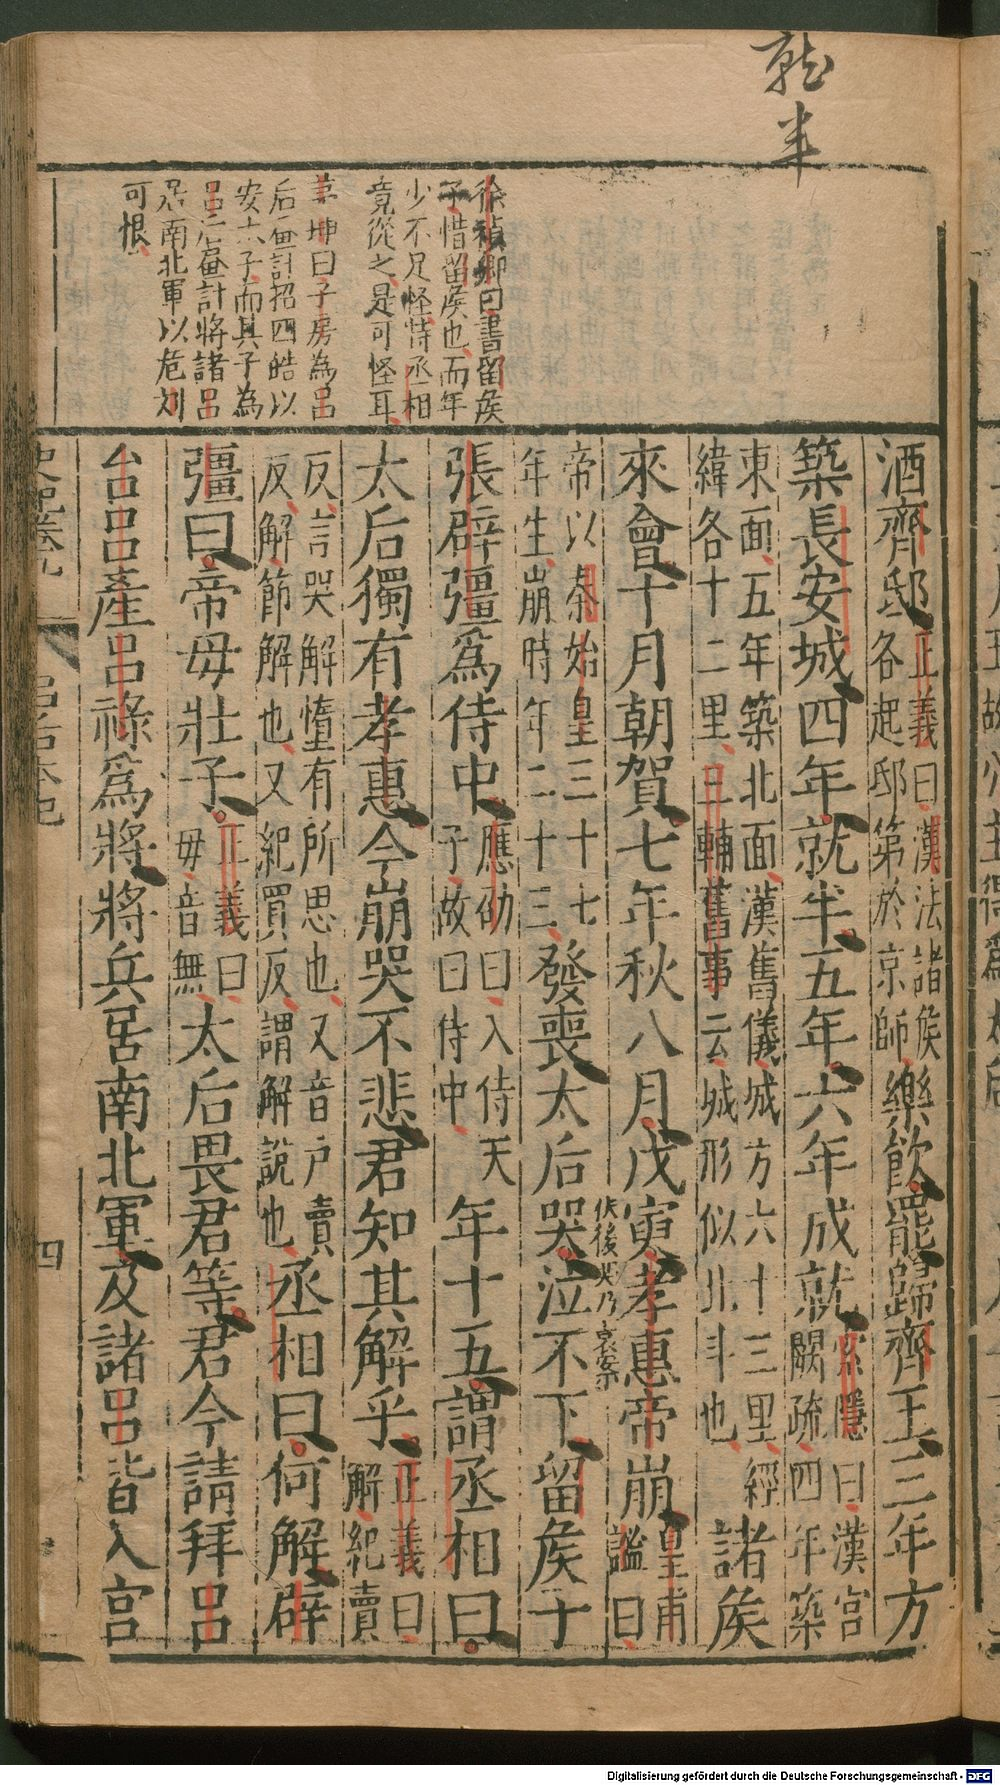 就
半
徐禎卿曰書留矦
子惜留矦也而年
少不足怪恃丞相
竟從之是可怪耳
坤曰子房為呂
后畫計招四皓以
安太子而其子為
呂后畫計將諸呂
居南北軍以危刘
可恨
酒齊邸正義曰漢法諸矦各起邸第於京師樂飲罷歸齊王三年方
築長安城四年就半五年六年成就索隱曰漢宮闕疏四年築
東面五年築北面漢舊儀城方六十三里經緯各十二里三輔舊事云城形似北斗也諸矦
來會十月朝賀七年秋八月戊寅孝惠帝崩皇甫謐曰
帝以秦始皇三十七年生崩時年二十三發喪太后哭泣不下留矦子
張辟彊爲侍中應劭曰入侍天子故曰侍中年十五謂丞相曰
太后獨有孝惠今崩哭不悲君知其解乎正義曰解紀賣
反言哭解惰有所思也又音户賣反解節解也又紀買反謂解說也丞相曰何解辟
彊曰帝毋壯子正義曰毋音無太后畏君等君今請拜呂
台呂產呂祿爲將將兵居南北軍及諸呂皆入宫
史記卷九
呂后本紀
四
Digitalisierung gefördert durch die Deutsche Forschungsgemeinschaft - DFG